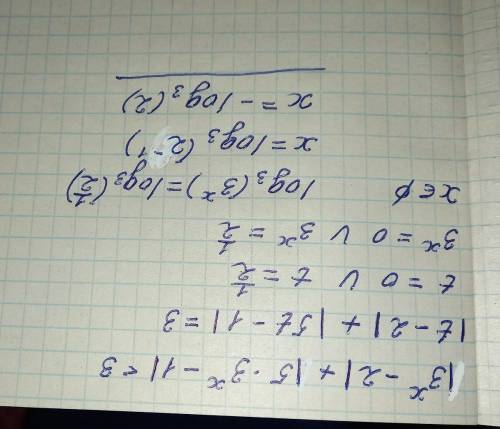 |3^x - 2| + |5 · 3^x - 1| < 3
|t - 2| + |5t - 1| = 3
t = 0 ∨ t = 1/2
3^x = 0 ∨ 3^x = 1/2
x ∈ ∅ log₃(3^x) = log₃(1/2)
x = log₃(2^-1)
x = - log₃(2)